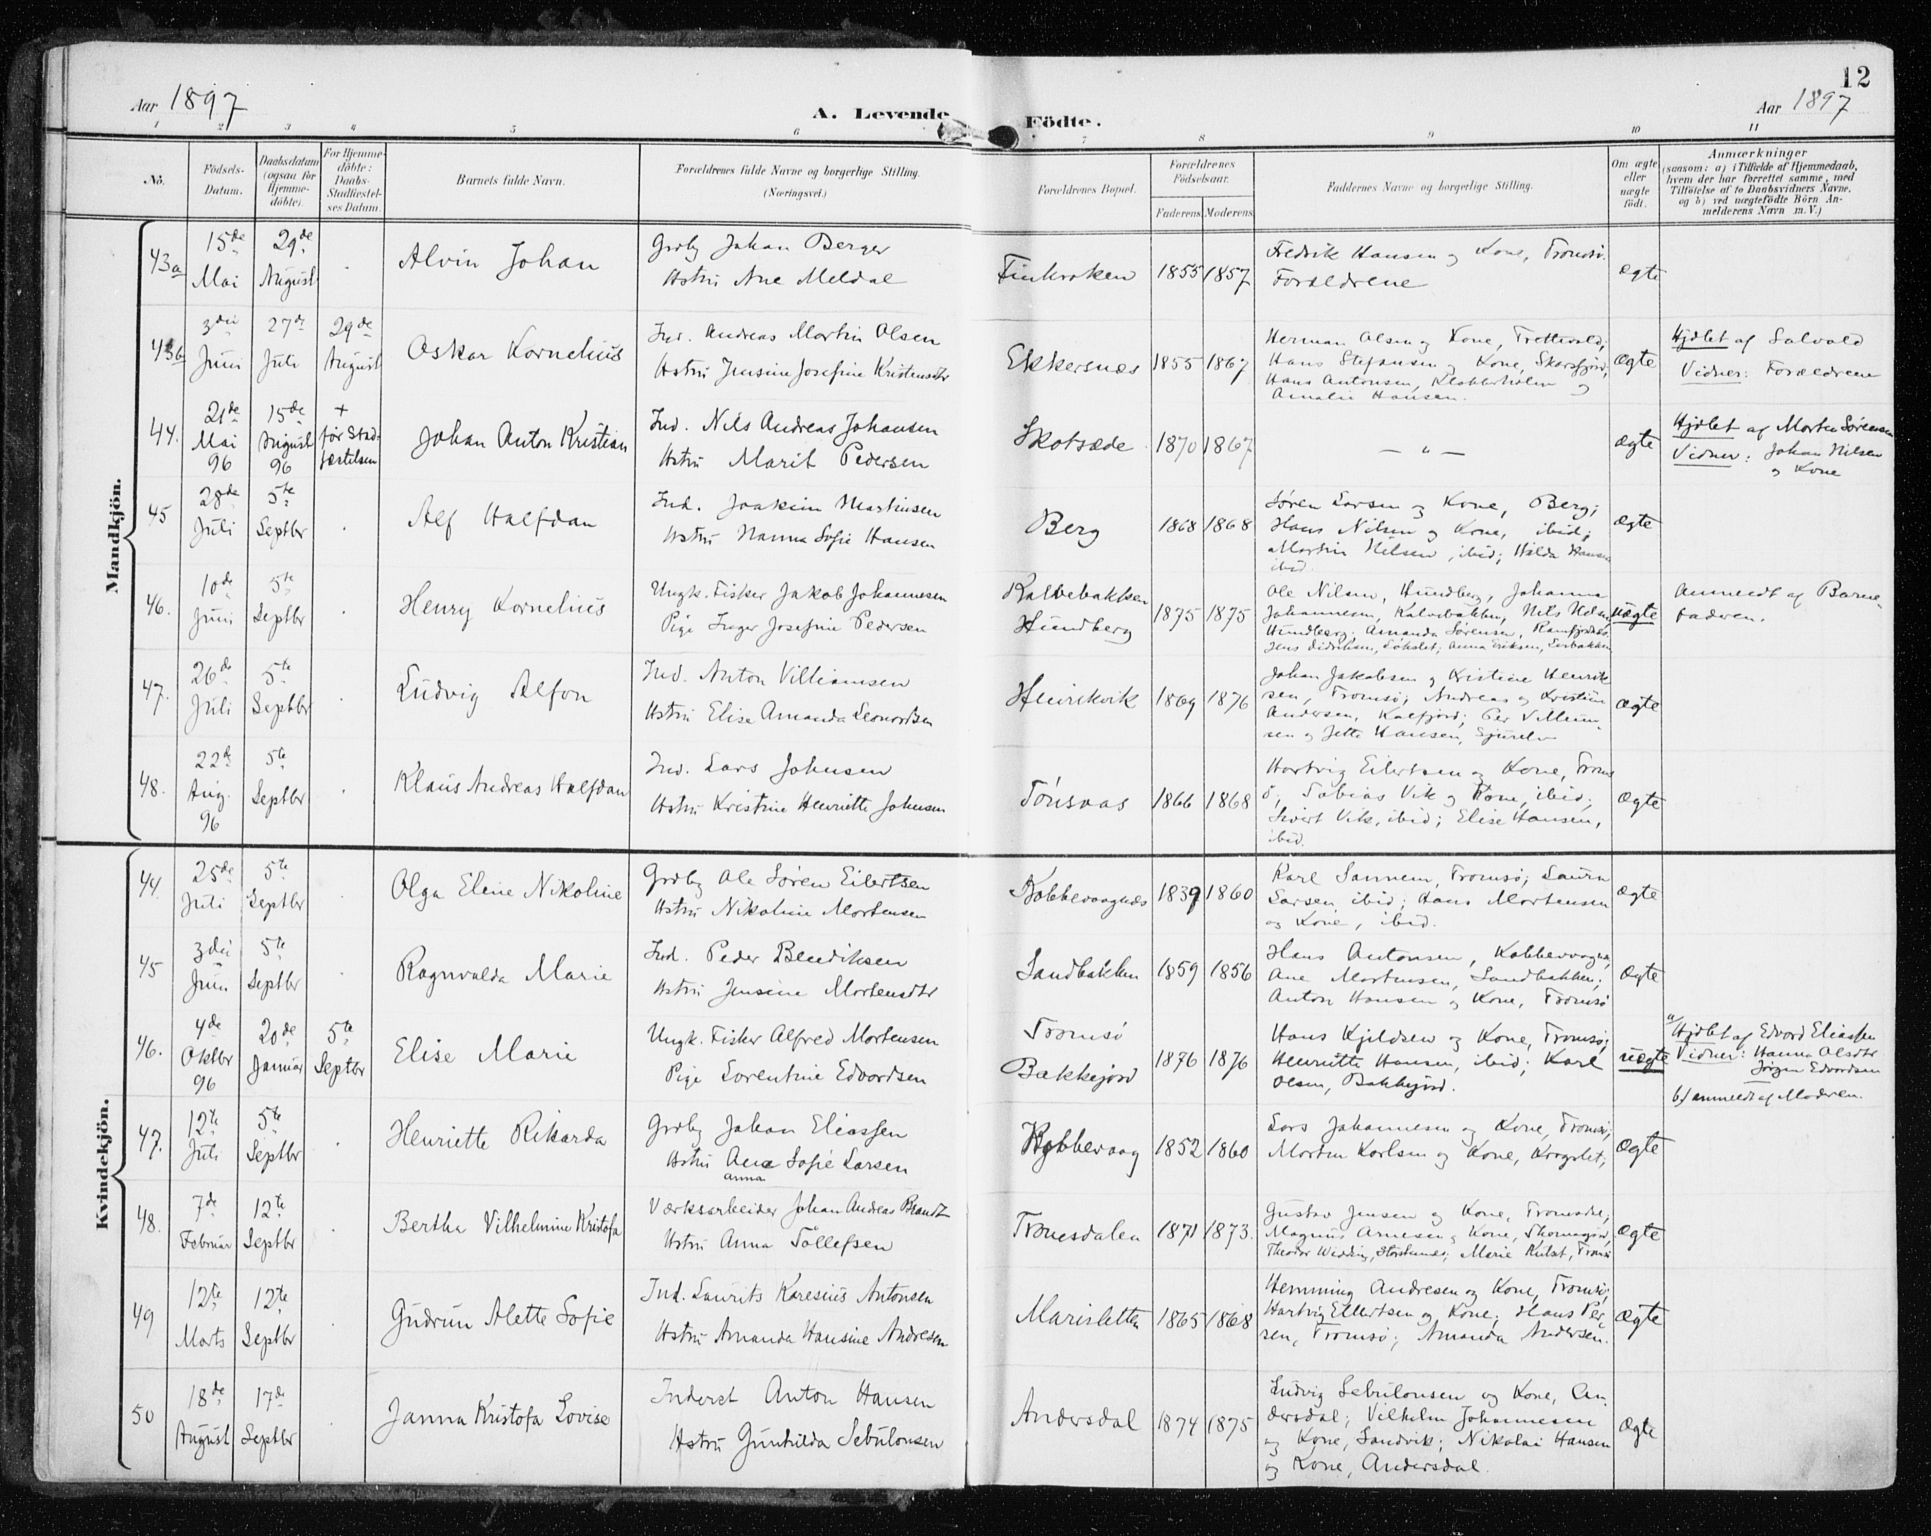 Aar 1897
A. Levende Födte.
Aar 1897
12
1 2 3 4 5 6 7 8 9 10 11
No.
Födsels-Datum.
Daabsdatum (ogsaa for Hjemme-döbte).
For Hjemme-döbte: Daabs-Stadfæstel-ses Datum.
Barnets fulde Navn.
Forældrenes fulde Navne og borgerlige Stilling. (Næringsvei.)
Forældrenes Bopæl.
Forældrenes Födselsaar.
Faderens Moderens
Faddernes Navne og borgerlige Stilling.
Om ægte eller uægte födt.
Anmærkninger
(saasom: a) i Tilfælde af Hjemmedaab, hvem der har forrettet samme, med Tilföielse af to Daabsvidners Navne, og b) ved uægtefödte Börn An-melderens Navn m. V.)
Mandkjön.
43a 15de Mai 29de August Alvin Johan
Grdbr Johan Berger
Hstru Ane Meldal
Finkroken 1855 1857
Fredrik Hansen og Kone, Tromsö.
Forældrene
ægte
43b 3die Juni 27de Juli 29de August Oskar Kornelius
Ind. Andreas Martin Olsen
Hstru Jensine Josefine Kristensdtr
Ekkersnes 1855 1867
Herman Olsen og Kone,
Hans Stefansen og Kone, Skarsfjord,
Hans Antonsen, Klobberholm og
Amalie Hansen.
ægte
Hjdbt af Salvald
Vidner: Forældrene
44. 21de Mai 96 15de August 96 + før Stadfæstelsen Johan Anton Kristian
Ind. Nils Andreas Johansen
Hstru Marit Pedersen
Skotsæde 1870 1867
— " —
ægte
Hjdbt af Morten Sørensen
Vidner: Johan Nilsen
og Kone
45 28de Juli 5te Septbr Alf Halfdan
Ind. Joakim Martinsen
Hstru Nanna Sofie Hansen
Berg 1868 1868
Søren Larsen og Kone, Berg;
Hans Nilsen og Kone, ibid;
Martin Nilsen, ibid; Hilda Hansen
ibid.
ægte
46. 10de Juni 5te Septbr Henry Kornelius
Ungk. Fisker Jakob Johannesen
Pige Inger Josefine Pedersen
Kalvebakken
Hundberg
1875 1875
Ole Nilsen, Hundberg, Johanna
Johannesen, Kalvebakken, Nils
Hundberg; Amanda Sørensen, Ramfjordnes
Jens Didriksen, Anna Eriksen,
uægte
Anmeldt af Barne-
faderen.
47. 26de Juli 5te Septbr Ludvig Alfon
Ind. Anton Villiamsen
Hstru Elise Amanda Leonardsen
Henrikvik 1869 1876
Johan Jakobsen og Kristine Henrik
sen, Tromsö; Andreas og Kristine
Andersen, Kalfjord; Per Villum-
sen og Jette Hansen,
ægte
48. 22de Aug. 96 5te Septbr Klaus Andreas Halfdan
Ind. Lars Johnsen
Hstru Kristine Henriette Johnsen
Tönsvas 1866 1868
Hartvig Eilertsen og Kone, Troms
ö; Tobias Vik og Kone, ibid;
Sivert Vik, ibid; Elise Hansen,
ibid.
ægte
Kvindekjön.
44. 25de Juli 5te Septbr Olga Eline Nikoline
Grdbr Ole Søren Eilertsen
Hstru Nikoline Mortensen
Kobbevaagnes 1839 1860
Karl Sannem, Tromsö; Laura
Larsen ibid; Hans Mortensen
og Kone, ibid.
ægte
45 3die Juni 5te Septbr Ragnvalda Marie
Ind. Peder Bendiksen
Hstru Jensine Mortensdtr
Sandbakken 1859 1856
Hans Antonsen, Kobbevaagnes,
Ane Mortensen, Sandbakken;
Anton Hansen og Kone, Tromsö
ægte
46. 4de Oktbr 96 20de Januar 5te Septbr Elise Marie
Ungk. Fisker Alfred Mortensen
Pige Lorentine Edvardsen
Tromsö
Bakkejord
1876 1876
Hans Kjeldsen og Kone, Tromsö;
Henriette Hansen, ibid; Karl
Olsen, Bakkejord.
uægte
a/ Hjdbt af Edvard Eliassen
Vidner: Hanna Olsdtr
Jørgen Edvardsen
b/ anmeldt af Moderen.
47. 12te Juli 5te Septbr Henriette Rikarda
Grdbr Johan Eliassen
Hstru Ane Sofie Larsen
Anna
Kobbevaag 1852 1860
Lars Johannesen og Kone, Tromsö;
Morten Karlsen og Kone,
ægte
48. 7de Februar 12te Septbr Bertha Vilhelmine Kristofa
Værksarbeider Johan Andreas Brandt
Hstru Anna Tollefsen
Tromsdalen 1871 1873.
Gustav Jensen og Kone,
Magnus Arnesen og Kone,
Theodor Wadding, Storstennes; Marie
ægte
49 12te Marts 12te Septbr Gudrun Alette Sofie
Ind. Laurits Karesius Antonsen
Hstru Amanda Hansine Andresen
Marisletten 1865 1868
Hemming Andresen og Kone, Tromsö;
Hartvig Ellertsen og Kone; Hans Per-
sen, Tromsö; Amanda Andersen.
ægte
50 18de August 17de Septbr Janna Kristofa Lovise
Inderst Anton Hansen
Hstru Gunhilda Sebulonsen
Andersdal 1874 1875
Ludvig Sebulonsen og Kone, An-
dersdal; Vilhelm Johannesen
og Kone, Sandvik; Nikolai Hansen
og Kone, Andersdal.
ægte